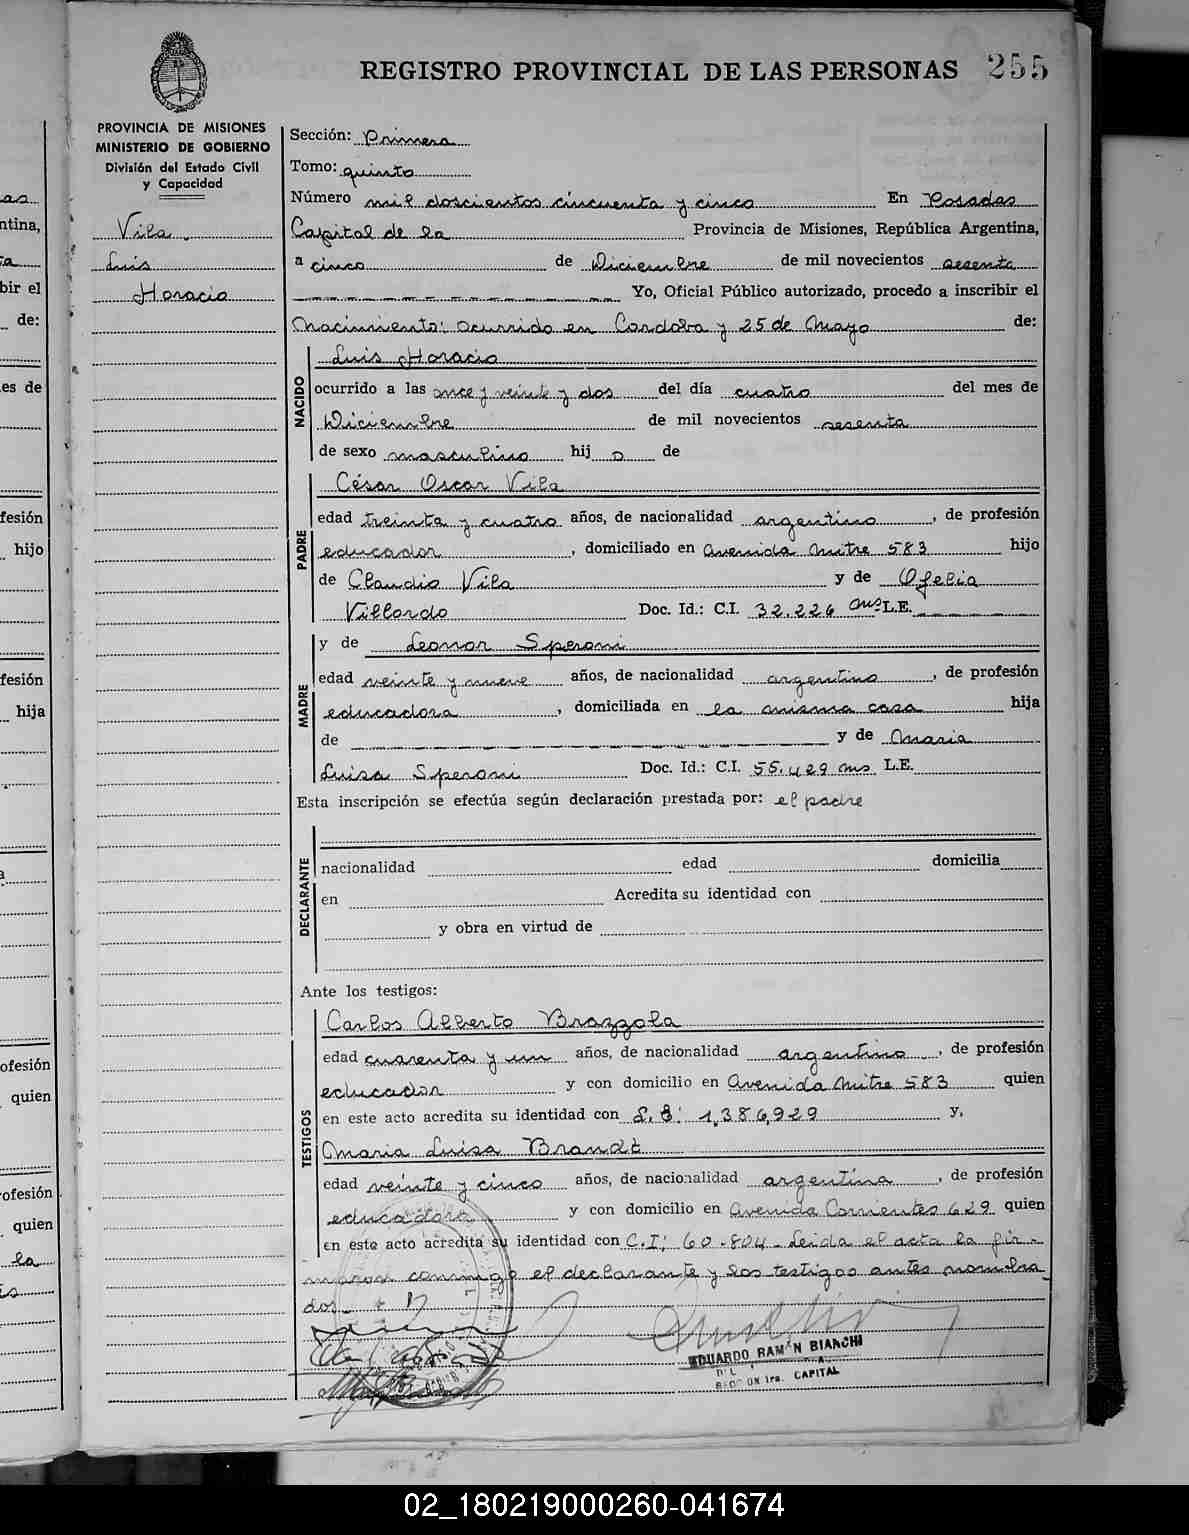 REGISTRO PROVINCIAL DE LAS PERSONAS 255
PROVINCIA DE MISIONES
MINISTERIO DE GOBIERNO
División del Estado Civil
y Capacidad
Vila
Luis
Horacio
Sección: Primera
Tomo: quinto
Número mil doscientos cincuenta y cinco En Posadas
Capital de la Provincia de Misiones, República Argentina,
a cinco de Diciembre de mil novecientos sesenta
Yo, Oficial Público autorizado, procedo a inscribir el
Nacimiento: ocurrido en Cordoba y 25 de Mayo de:
NACIDO
Luis Horacio
ocurrido a las once y veinte y dos del día cuatro del mes de
Diciembre de mil novecientos sesenta
de sexo masculino hij o de
PADRE
César Oscar Vila
edad treinta y cuatro años, de nacionalidad argentino, de profesión
educador, domiciliado en Avenida Mitre 583 hijo
de Claudio Vila y de Ofelia
Villordo Doc. Id.: C.I. 32.226 Mns L.E.
MADRE
y de Leonor Speroni
edad veinte y nueve años, de nacionalidad argentina, de profesión
educadora, domiciliada en la misma casa hija
de y de Maria
Luisa Speroni Doc. Id.: C.I. 55.429 Mns L.E.
Esta inscripción se efectúa según declaración prestada por: el padre
DECLARANTE
nacionalidad edad domicilia
en Acredita su identidad con
y obra en virtud de
Ante los testigos:
TESTIGOS
Carlos Alberto Brazzola
edad cuarenta y un años, de nacionalidad argentino, de profesión
educador y con domicilio en Avenida Mitre 583 quien
en este acto acredita su identidad con L.E: 1,386,929 y,
Maria Luisa Brandt
edad veinte y cinco años, de nacionalidad argentina, de profesión
educadora y con domicilio en Avenida Corrientes 629 quien
en este acto acredita su identidad con C.I: 60.804 - Leida el acta la fir-
maron conmigo el declarante y los testigos antes nombra-
dos-
EDUARDO RAMON BIANCHI
CAPITAL
as
ntina,
bir el
de:
es de
fesión
hijo
fesión
hija
ofesión
quien
ofesión
quien
la
02_180219000260-041674